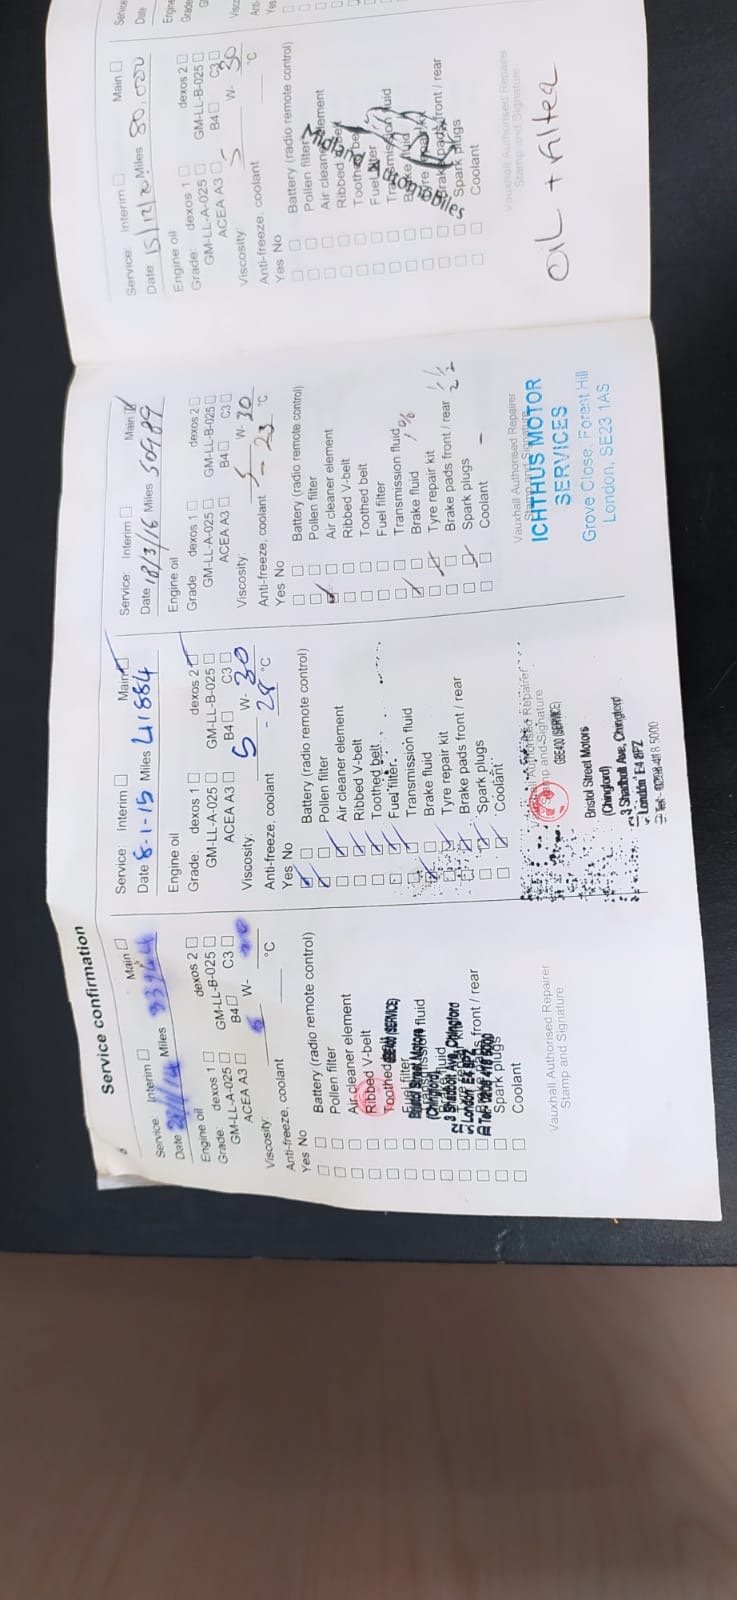 Service confirmation
6
Service: Interim □ Main □
Date Miles 33944
Engine oil
Grade: dexos 1 □ dexos 2 □
GM-LL-A-025 □ GM-LL-B-025 □
ACEA A3 □ B4 □ C3 □
Viscosity: 5 W- 30
Anti-freeze, coolant °C
Yes No
Battery (radio remote control)
Pollen filter
Air cleaner element
Ribbed V-belt
Toothed
Fuel filter
Transmission fluid
Brake fluid
front / rear
Spark plugs
Coolant
Bristol Street Motors
(Chingford)
3 Shadbolt Ave, Chingford
London E4 8PZ
Vauxhall Authorised Repairer
Stamp and Signature
Service: Interim □ Main ☑
Date 8-1-15 Miles 41884
Engine oil
Grade: dexos 1 □ dexos 2 ☑
GM-LL-A-025 □ GM-LL-B-025 □
ACEA A3 □ B4 □ C3 □
Viscosity: 5 W- 30
Anti-freeze, coolant - 28 °C
Yes No
Battery (radio remote control)
Pollen filter
Air cleaner element
Ribbed V-belt
Toothed belt
Fuel filter
Transmission fluid
Brake fluid
Tyre repair kit
Brake pads front / rear
Spark plugs
Coolant
Authorised Repairer
Stamp and Signature
(SERVICE)
Bristol Street Motors
(Chingford)
3 Shadbolt Ave, Chingford
London E4 8PZ
Service: Interim □ Main ☑
Date 18/3/16 Miles 50989
Engine oil
Grade: dexos 1 □ dexos 2 □
GM-LL-A-025 □ GM-LL-B-025 □
ACEA A3 □ B4 □ C3 □
Viscosity: 5 W- 30
Anti-freeze, coolant - 23 °C
Yes No
Battery (radio remote control)
Pollen filter
Air cleaner element
Ribbed V-belt
Toothed belt
Fuel filter
Transmission fluid
Brake fluid 1%
Tyre repair kit
Brake pads front / rear
Spark plugs
Coolant –
Vauxhall Authorised Repairer
Stamp and Signature
ICHTHUS MOTOR
SERVICES
Grove Close. Forest Hill
London, SE23 1AS
Service: Interim □ Main □
Date 15/12/20 Miles 80,000
Engine oil
Grade: dexos 1 □ dexos 2 □
GM-LL-A-025 □ GM-LL-B-025 □
ACEA A3 □ B4 □ C3 □
Viscosity: 5 W- 30
Anti-freeze, coolant °C
Yes No
Battery (radio remote control)
Pollen filter
Air cleaner element
Ribbed
Toothed belt
Fuel filter
Transmission fluid
Brake fluid
Brake pads front / rear
Spark plugs
Coolant
Midland Automobiles
Vauxhall Authorised Repairer
Stamp and Signature
OIL + Filter
Service
Date
Engine
Grade
Visc
Anti-
Yes